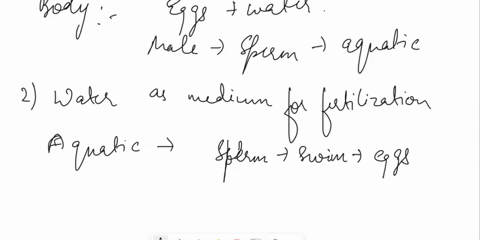 Body :- Eggs → water.
Male → Sperm → aquatic
2) Water as medium for fertilization
Aquatic → Sperm → swim → eggs